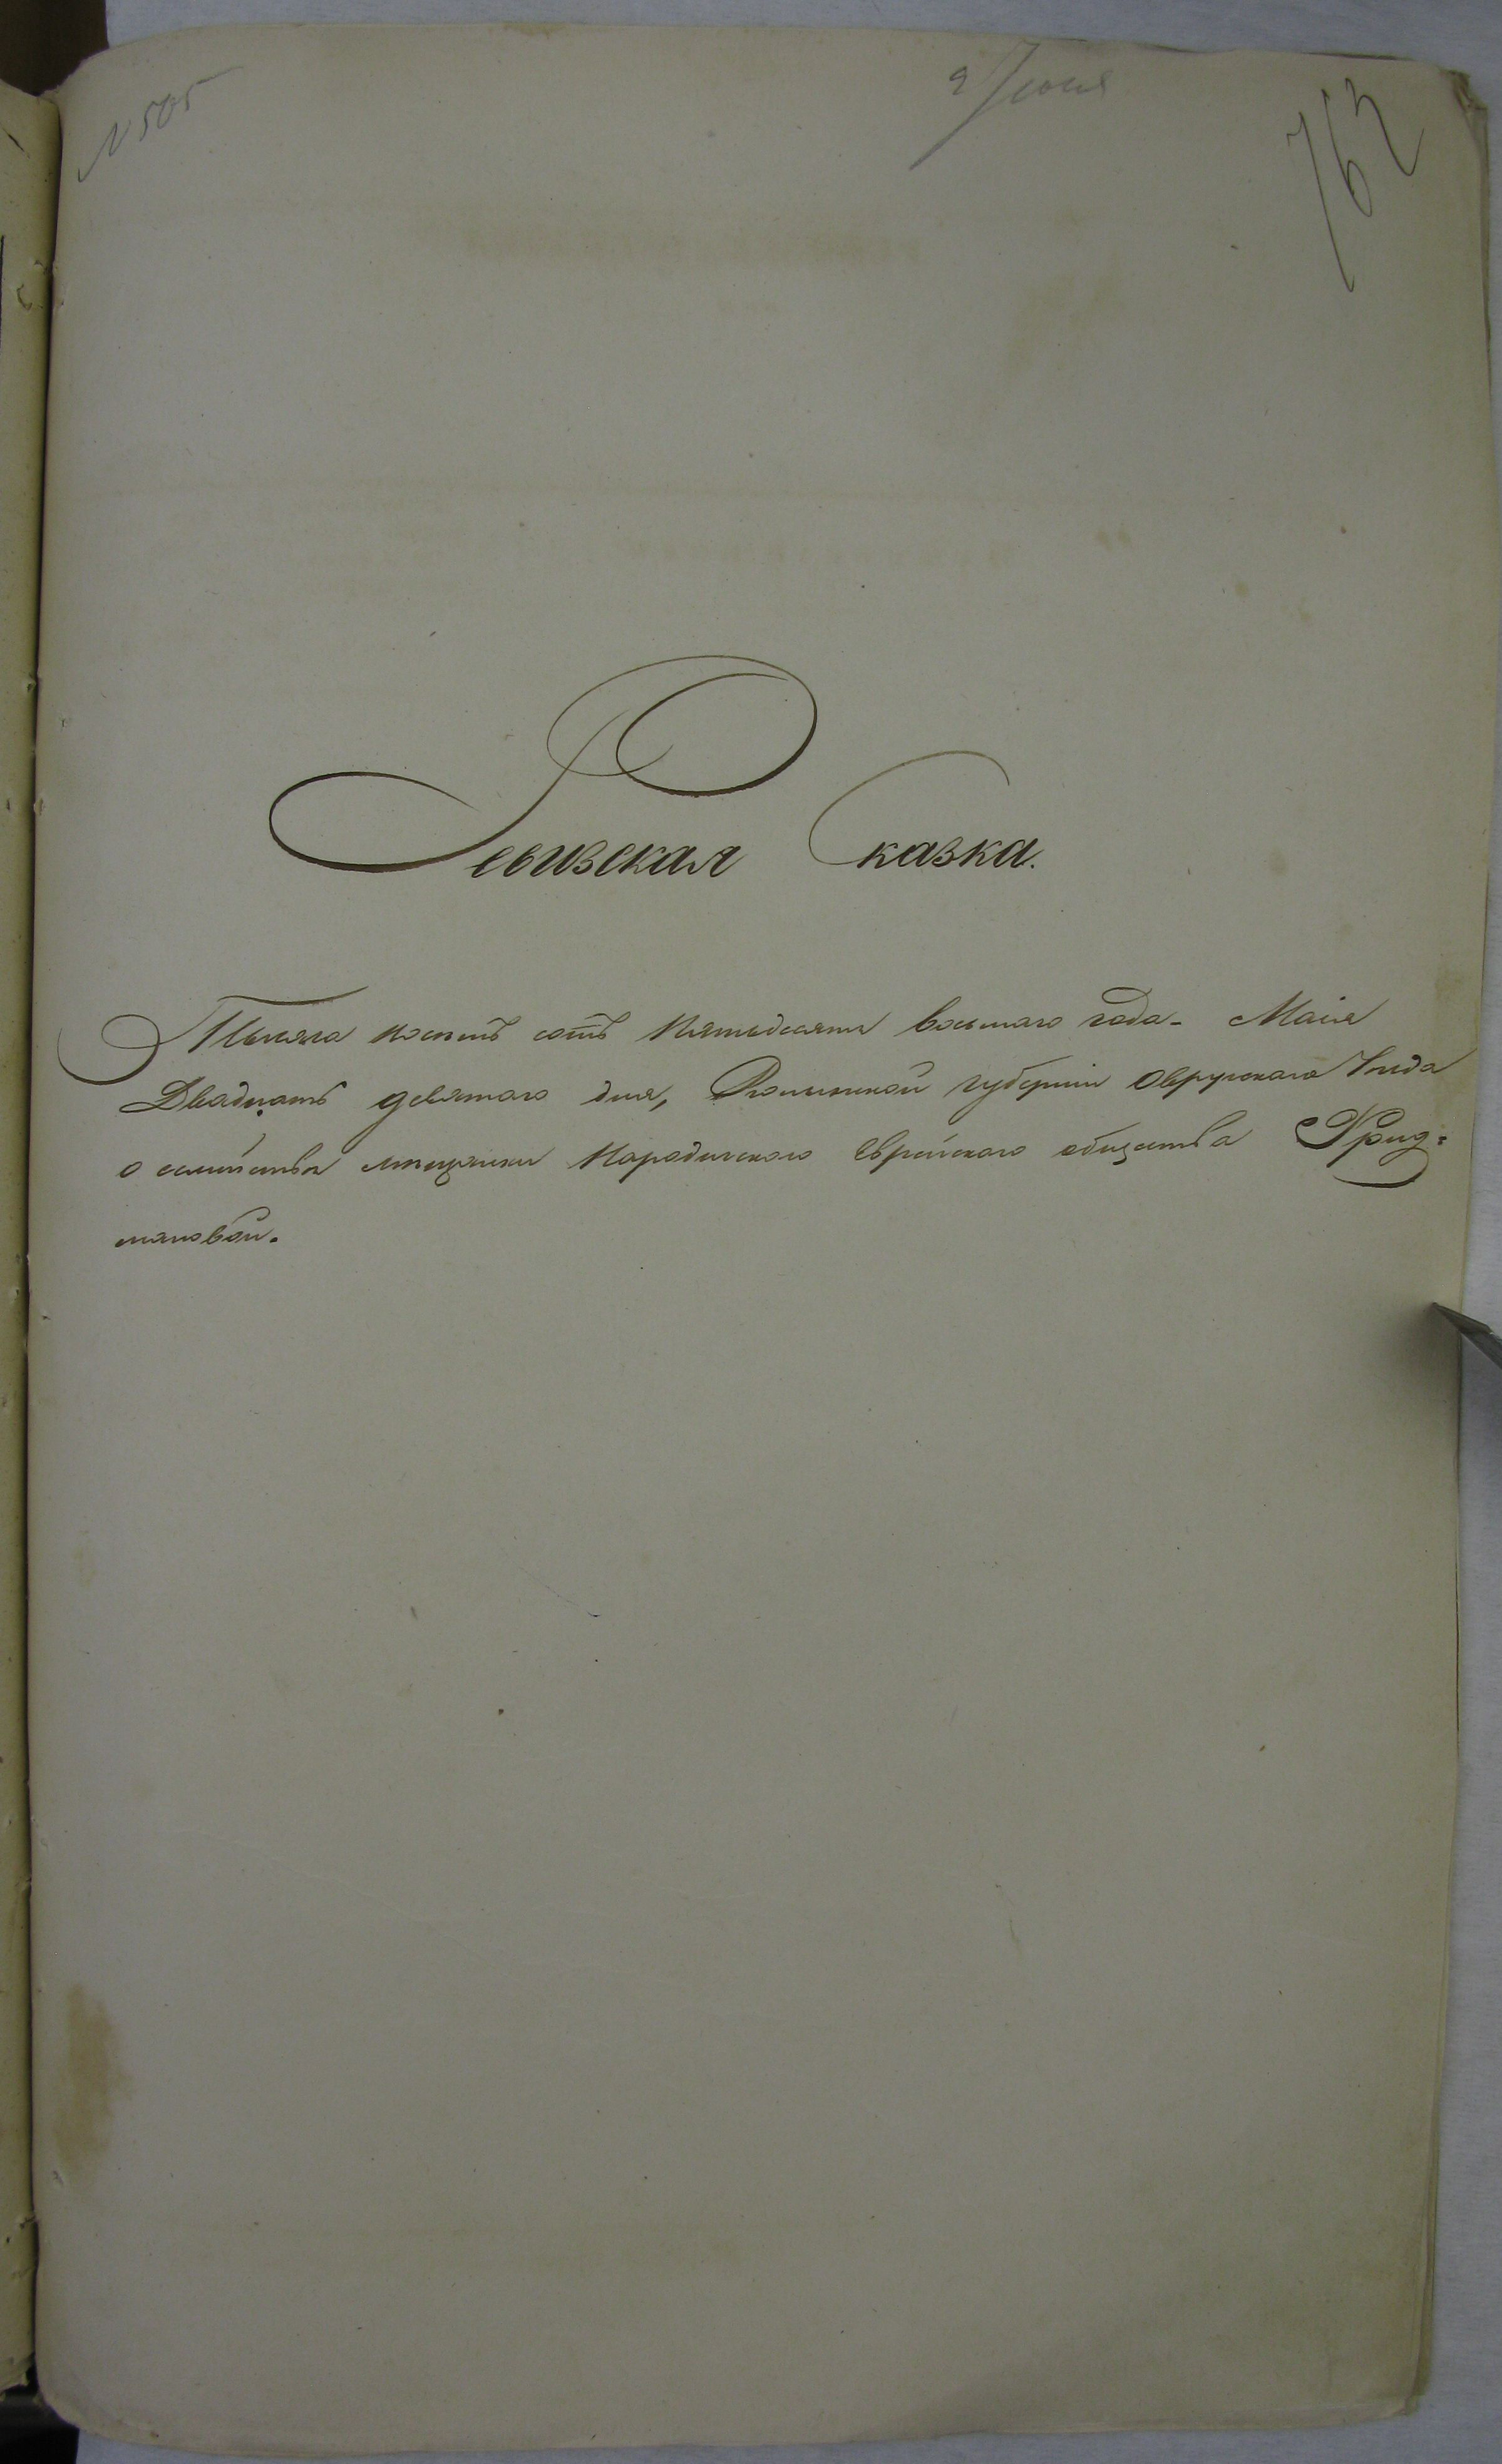 № 505
9 Июня
763
Ревизская Сказка.
Тысяча восемь сотъ пятьдесятъ восьмаго года - Маія
Двадцать девятаго дня, Волынской губерніи Овручскаго Уѣзда
о семействѣ мѣщанки Народичскаго Еврейскаго общества Фрид=
мановой.